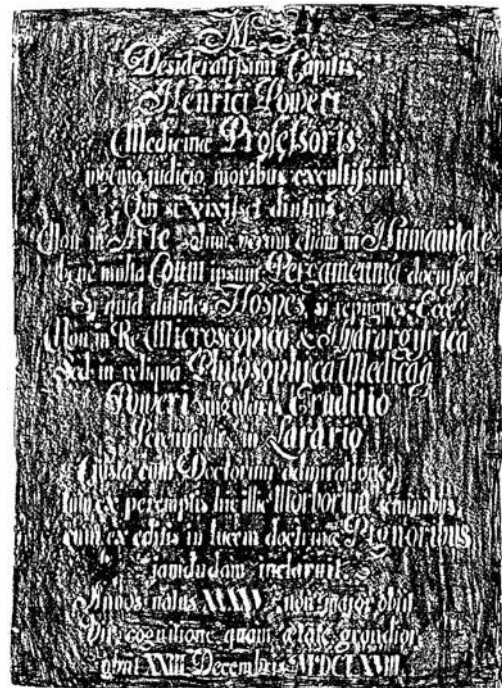 M. S.
Desideratissimi Capitis,
Henrici Poweri
Medicinæ Professoris
judicio moribus excultissimi,
Qui si vixisset diutius,
Non in Arte solum, verum etiam in Humanitate
bene multa Coum ipsum Pergamenumq docuisset
Si quid dubites Hospes, si repugnes: Ecce
Non in Re Microscopica & Hydrargyrica
Sed in reliqua Philosophica Medicaq
Poweri singularis Eruditio
in Larario
(justa cum Doctorum admiratione)
tum ex peremptis hic illic Morborum seminibus,
tum ex editis in lucem doctrinæ Pignoribus
jamdudum inclaruit.
Annos natus non major obiit
Vir cognitione quam ætate grandior
obiit XXIII Decembris MDCLXVIII.